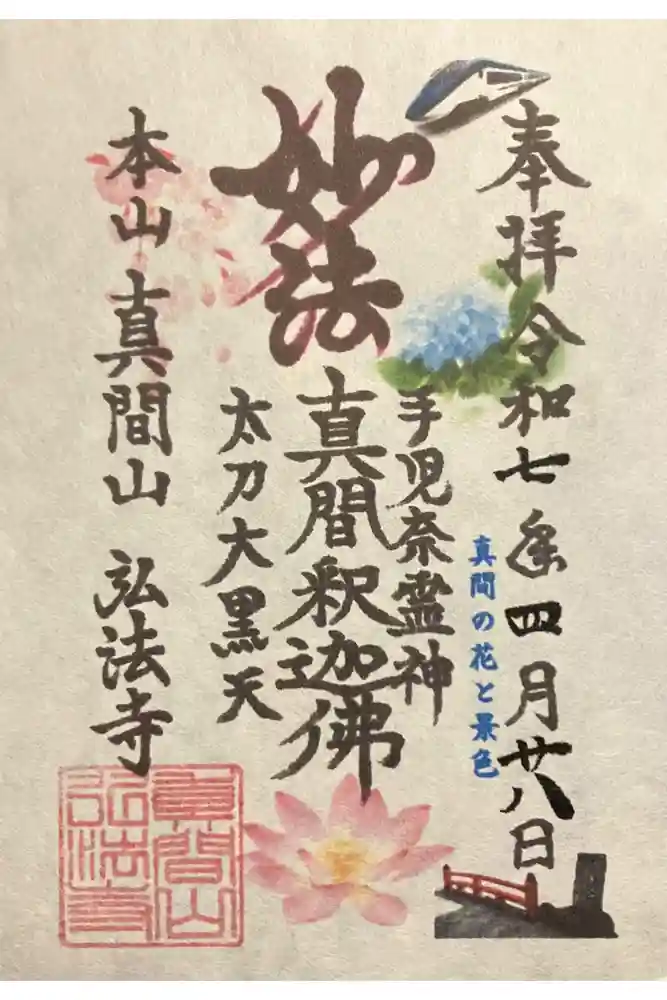 奉拝令和七年四月廿八日
真間の花と景色
妙法
手児奈霊神
真間釈迦佛
太刀大黒天
本山 真間山 弘法寺
真間山
弘法寺